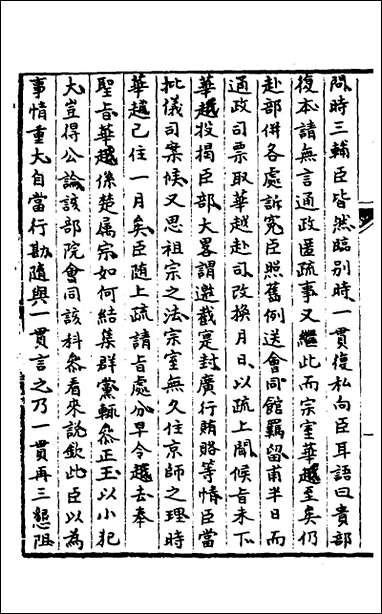 問時三輔臣皆然臨別時一貫復私向臣耳語曰貴部
復本請無言通政匿疏事又繼此而宗室華越至矣仍
赴部併各處訴冤臣照舊例送會同館羈留甫半日而
通政司票取華越赴司改換月日以疏上聞候旨未下
華越投揭臣部大畧謂邀截寔封廣行賄賂等情臣當
批儀司案候又思祖宗之法宗室無久住京師之理時
華越已住一月矣臣隨上疏請旨處分早令越去奉
聖旨華越係楚属宗如何結集群黨輒叅正王以小犯
大豈得公論該部院會同該科叅看來說欽此臣以為
事情重大自當行勘隨與一貫言之乃一貫再三懇阻